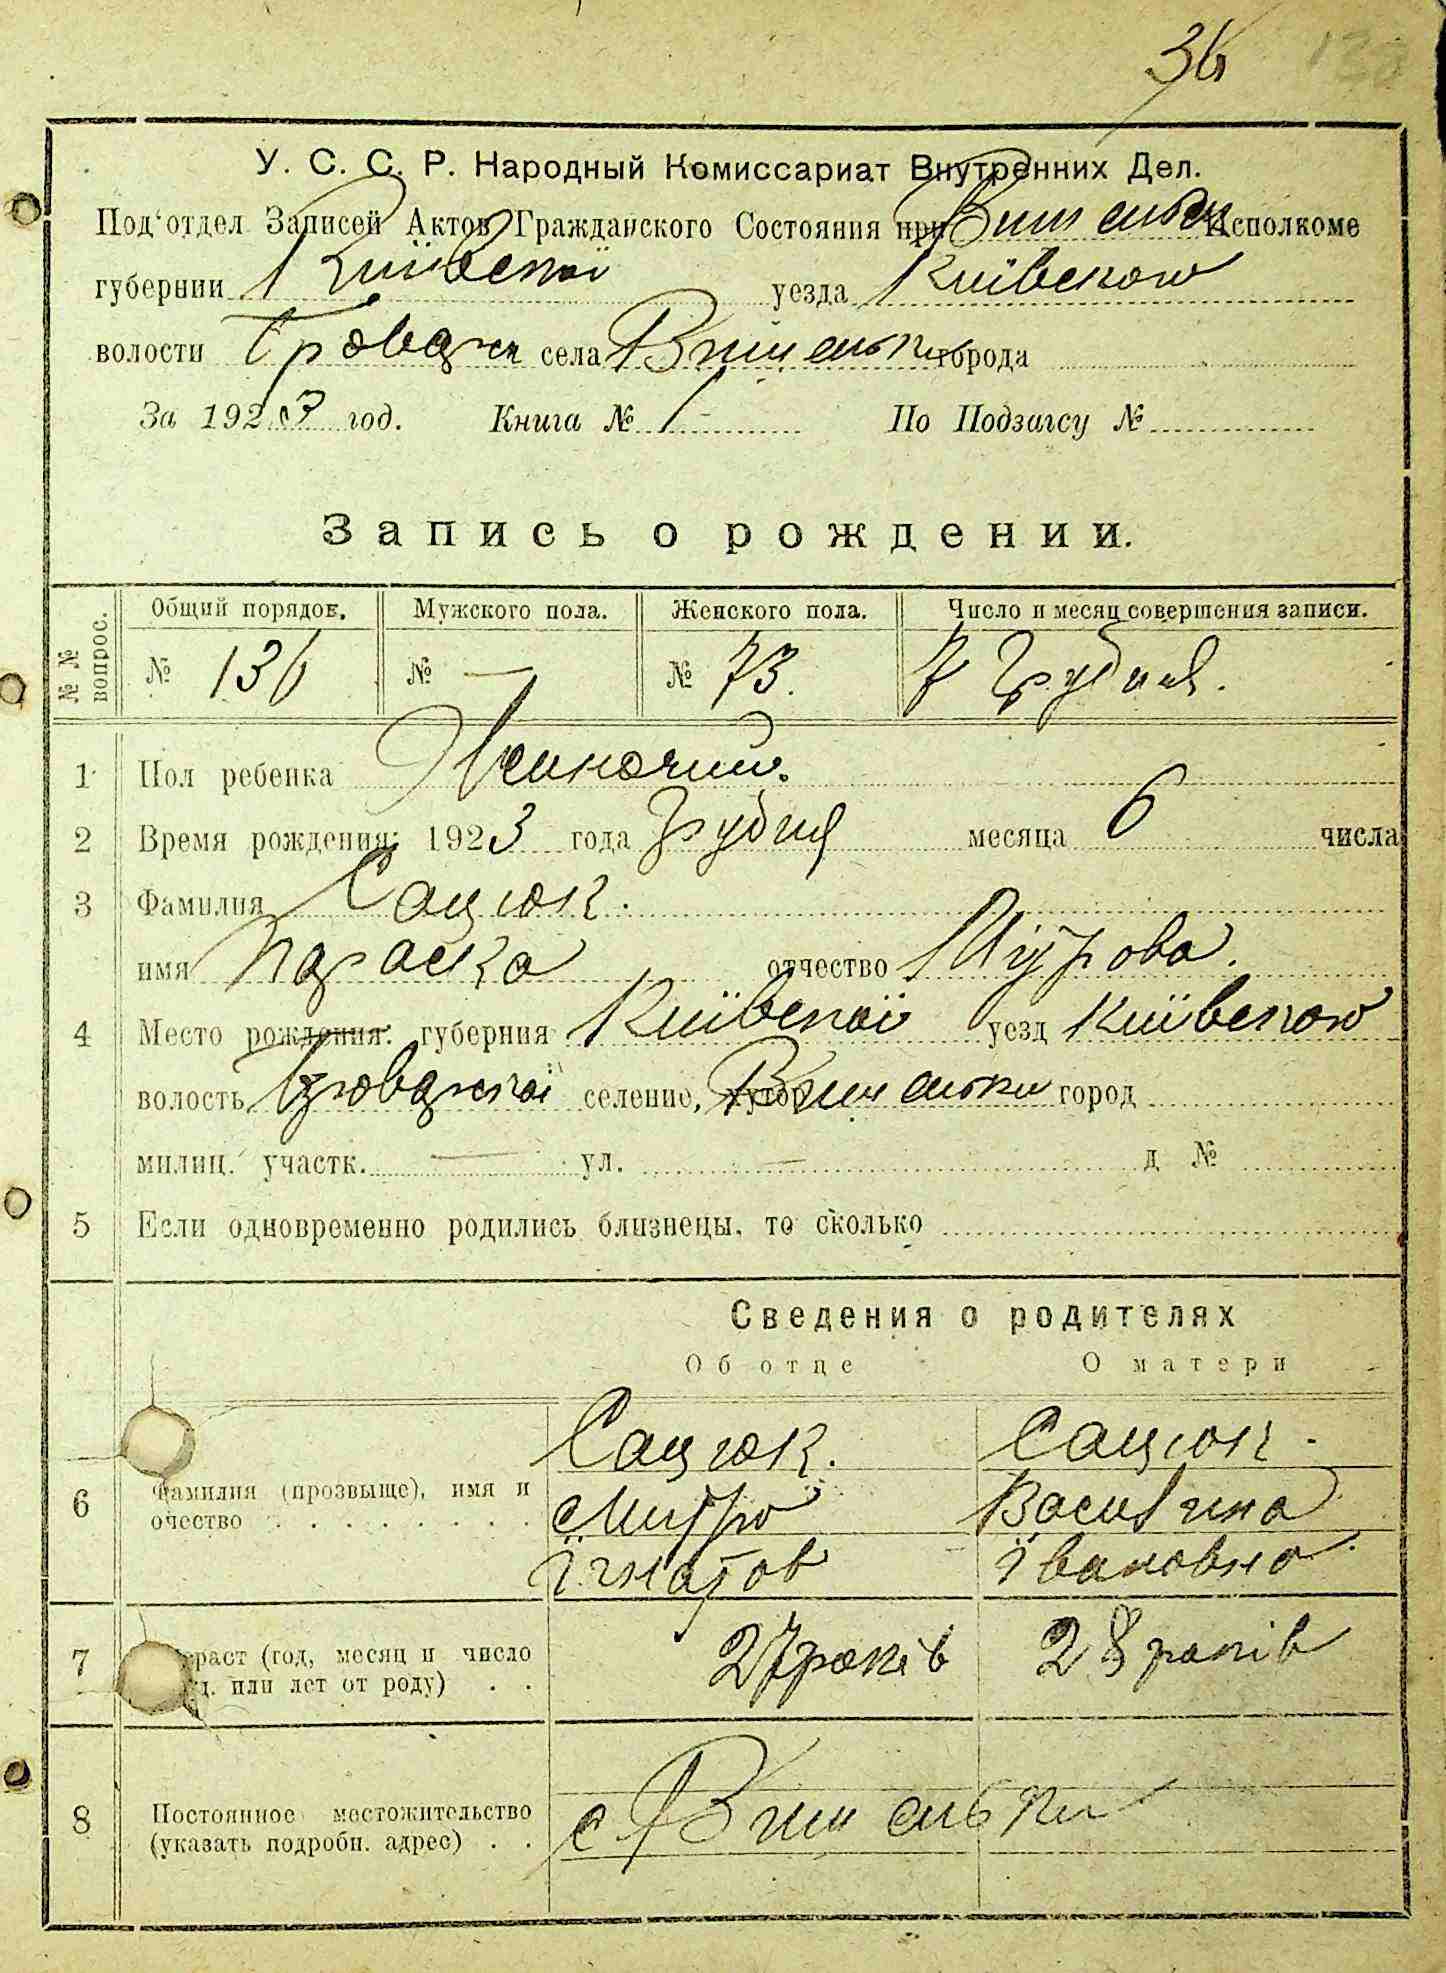 36
У. С. С. Р. Народный Комиссариат Внутренних Дел.
Под'отдел Записей Актов Гражданского Состояния при Вишеньк Исполкоме
губернии Київскої уезда Київского
волости села Вишеньки города
За 1923 год. Книга № По Подзагсу №
Запись о рождении.
№ № вопрос. Общий порядов. Мужского пола. Женского пола. Число и месяц совершения записи.
№ 136 № — № 73. 7 Грудня.
1 Пол ребенка Жиночий.
2 Время рождения: 1923 года Грудня месяца 6 числа
3 Фамилия Сацюк.
имя Параска отчество
4 Место рождения: губерния Київскої уезд Київского
волость селение, хутор Вишеньки город
милиц. участк. — ул. — д №
5 Если одновременно родились близнецы, то сколько
Сведения о родителях
Об отце О матери
Сацюк. Сацюк.
6 Фамилия (прозвыще), имя и очество Митро Василина
Ігнатов Івановна
7 раст (год, месяц и число д. или лет от роду) 27 років 28 років
8 Постоянное местожительство
(указать подробн. адрес) с Вишеньки